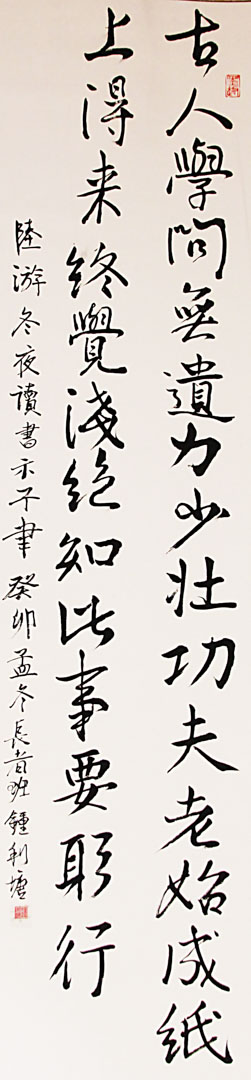 古人學問無遺力少壯功夫老始成紙
上得来終覺淺絕知此事要躬行
陸游冬夜讀書示子聿 癸卯孟冬長者班鍾利塘